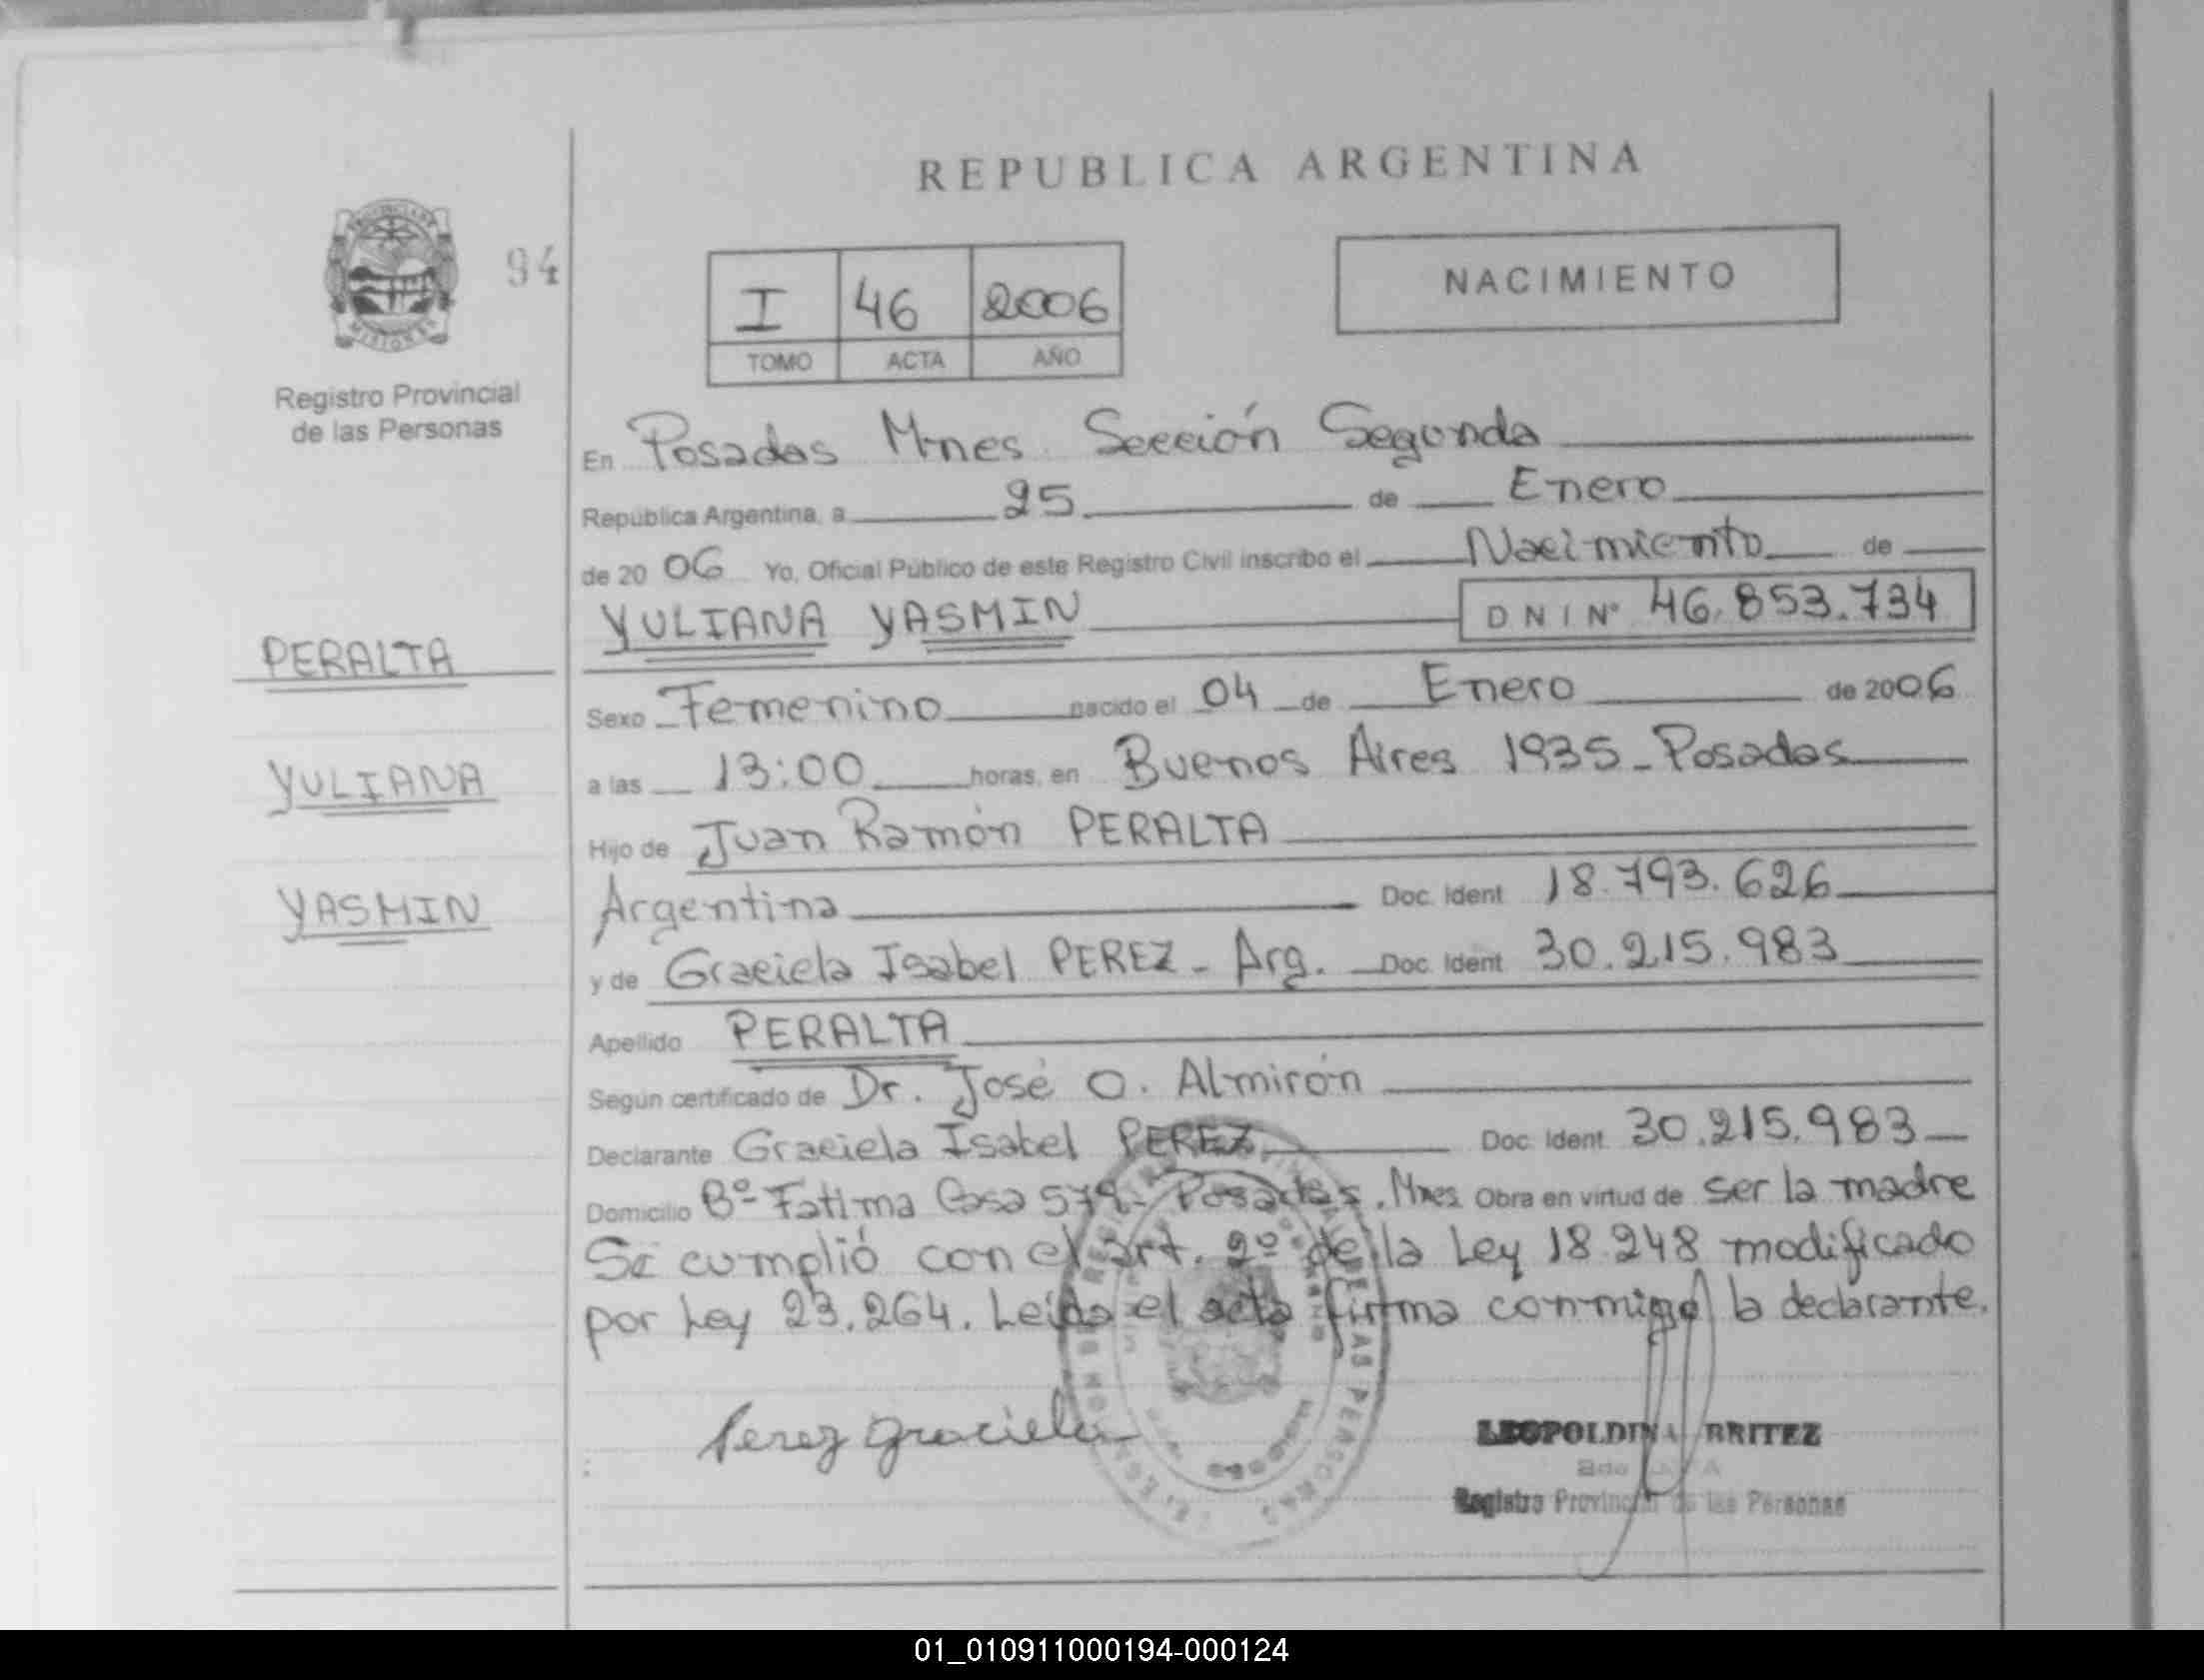 REPUBLICA ARGENTINA
PROVINCIA DE
MISIONES
94
Registro Provincial
de las Personas
I 46 2006
TOMO ACTA AÑO
NACIMIENTO
En Posadas Mnes. Sección Segunda
República Argentina, a 25 de Enero
de 2006 Yo, Oficial Público de este Registro Civil inscribo el Nacimiento de
YULIANA YASMIN DNI Nº 46.853.734
PERALTA
YULIANA
YASMIN
Sexo Femenino nacido el 04 de Enero de 2006
a las 13:00 horas, en Buenos Aires 1935 - Posadas
Hijo de Juan Ramón PERALTA
Argentina Doc. Ident. 18.793.626
y de Graciela Isabel PEREZ - Arg. Doc. Ident. 30.215.983
Apellido PERALTA
Según certificado de Dr. José O. Almirón
Declarante Graciela Isabel PEREZ Doc. Ident. 30.215.983
Domicilio Bº Fatima Casa 579 - Posadas. Mnes Obra en virtud de ser la madre
Se cumplió con el art. 2º de la Ley 18.248 modificado
por Ley 23.264. Leída el acta firma conmigo la declarante.
Perez Graciela
LEOPOLDINA BRITEZ
Registro Provincial de las Personas
01_010911000194-000124